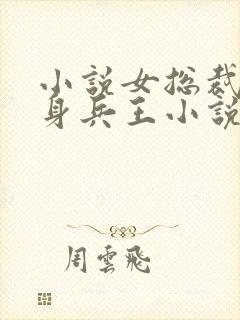 小說女总裁
身兵王小說
周雲飛